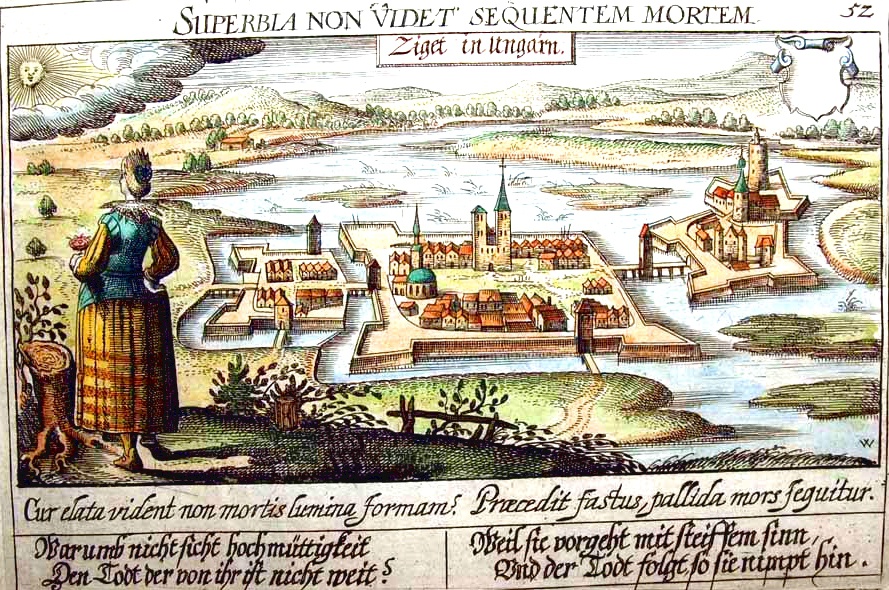 SUPERBIA NON VIDET SEQUENTEM MORTEM.
52
Ziget in Ungarn.
W
Cur elata vident non mortis lumina formam? Præcedit fastus, pallida mors sequitur.
Warumb nicht sicht hochmüttigkeit
Den Todt der von ihr ist nicht weit?
Weil sie vorgeht mit steiffem sinn,
Vnd der Todt folgt, so sie nimpt hin.